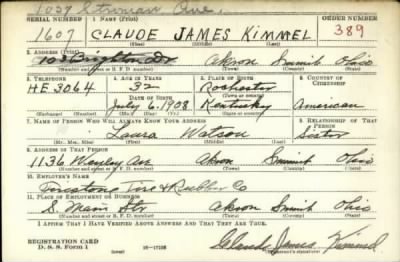 1057 Ave.
SERIAL NUMBER 1. NAME (Print) ORDER NUMBER
1607 CLAUDE JAMES KIMMEL 389
(First) (Middle) (Last)
2. ADDRESS (Print)
103 Brighton Dr Akron Summit Ohio
(Number and street or R. F. D. number) (Town) (County) (State)
3. TELEPHONE 4. AGE IN YEARS 5. PLACE OF BIRTH 6. COUNTRY OF CITIZENSHIP
HE 3064 32 Rochester
DATE OF BIRTH (Town or county)
July 6, 1908 Kentucky American
(Exchange) (Number) (Mo.) (Day) (Yr.) (State or country)
7. NAME OF PERSON WHO WILL ALWAYS KNOW YOUR ADDRESS 8. RELATIONSHIP OF THAT PERSON
Laura Watson Sister
(Mr., Mrs., Miss) (First) (Middle) (Last)
9. ADDRESS OF THAT PERSON
1136 Ave Akron Summit Ohio
(Number and street or R. F. D. number) (Town) (County) (State)
10. EMPLOYER'S NAME
Firestone Tire & Rubber Co
11. PLACE OF EMPLOYMENT OR BUSINESS
S. Main Str Akron Summit Ohio
(Number and street or R. F. D. number) (Town) (County) (State)
I AFFIRM THAT I HAVE VERIFIED ABOVE ANSWERS AND THAT THEY ARE TRUE.
REGISTRATION CARD
D. S. S. Form 1 (over) 16-17105 Claude James Kimmel
(Registrant's signature)